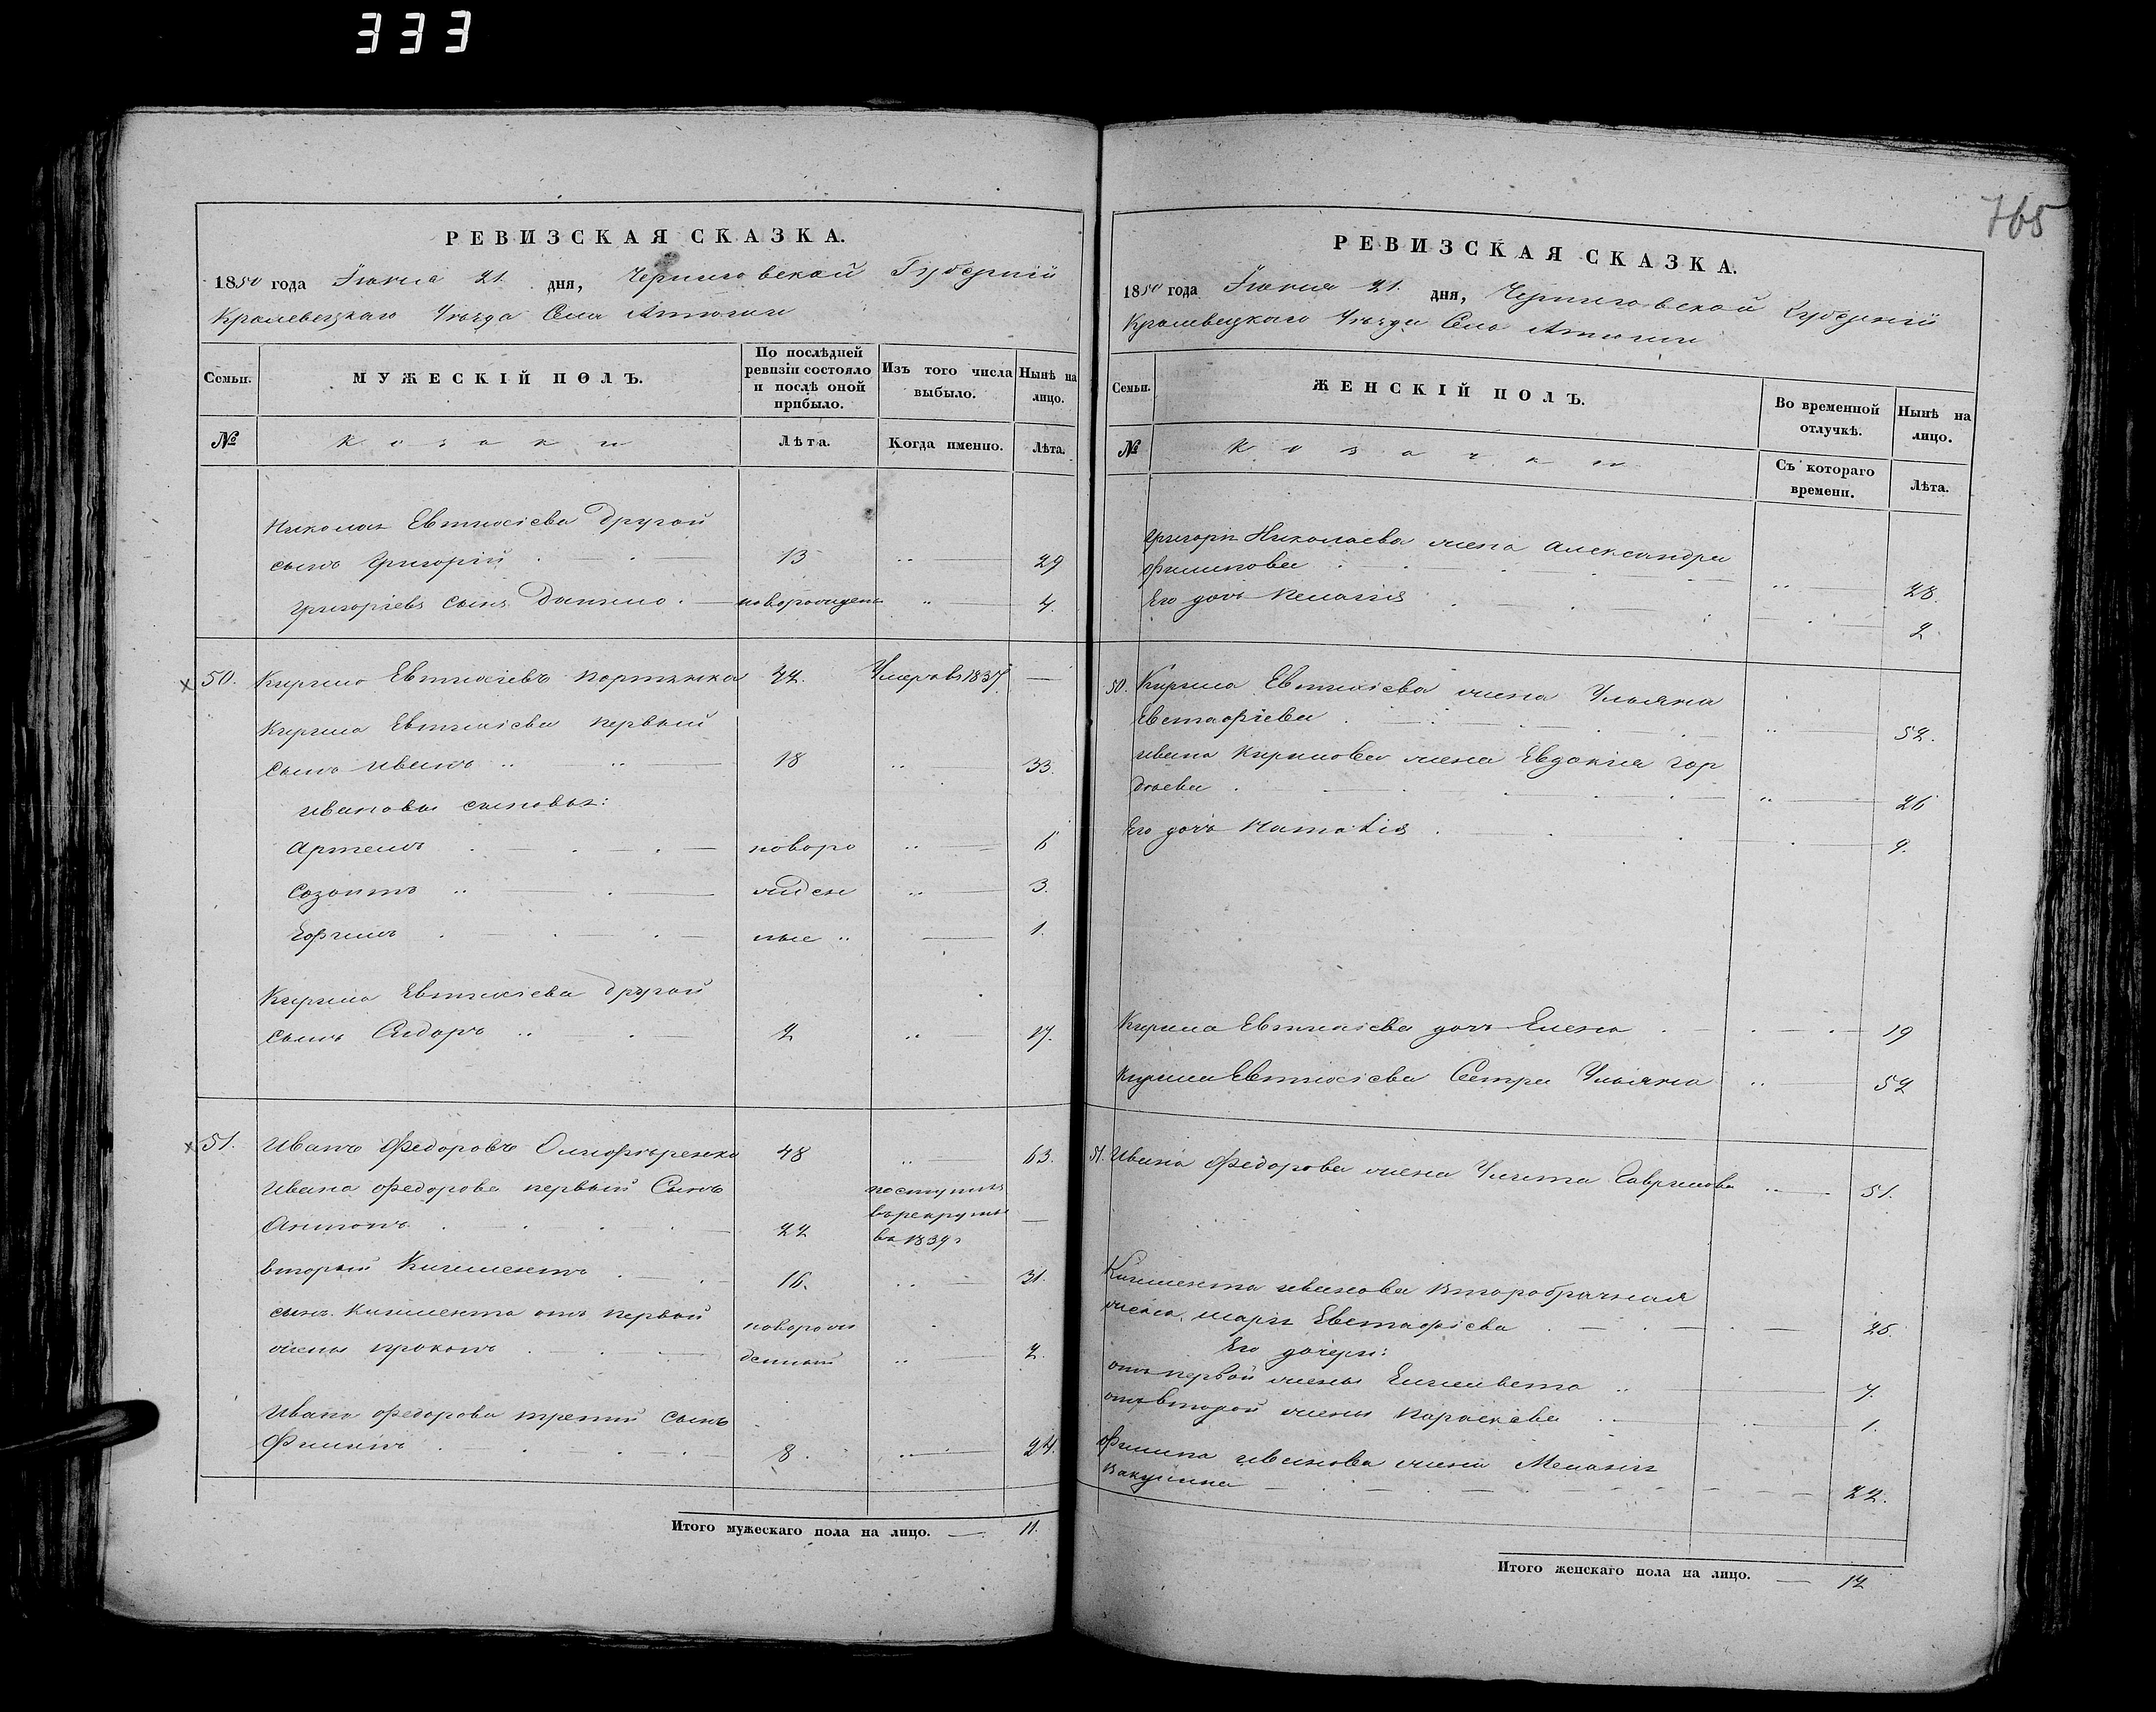 333
765
РЕВИЗСКАЯ СКАЗКА.
1850 года Іюня 21. дня, Черниговской Губерніи
Кролевецкаго Уѣзда Села Атюши
Семьи. МУЖЕСКІЙ ПОЛЪ. По послѣдней ревизіи состояло и послѣ оной прибыло. Изъ того числа выбыло. Нынѣ на лицо.
№ Козаки Лѣта. Когда именно. Лѣта.
Николая Евтихіева другой
сынъ Григорій 13 29
Григоріевъ сынъ Данило новорожденъ 4.
50. Кирило Евтихіевъ 42. Умеръ въ 1837
Кирила Евтихіева первый
сынъ Иванъ 18 33.
Ивановы сыновья:
Артемъ новоро 6
Созонтъ жден 3.
Ефимъ ные 1.
Кирила Евтихіева другой
сынъ Сидоръ 2 17.
51. Иванъ Федоровъ 48 63.
Ивана Федорова первый Сынъ поступилъ
Антонъ 22 въ рекруты
въ 1839
вторый Климентъ 16. 31.
сынъ Климента отъ первой новорож
жены Прокопъ денный 2.
Ивана Федорова третій сынъ
Филипъ 8. 24.
Итого мужескаго пола на лицо. 11.
РЕВИЗСКАЯ СКАЗКА.
1850 года Іюня 21. дня, Черниговской Губерніи
Кролевецкаго Уѣзда Села Атюши
Семьи. ЖЕНСКІЙ ПОЛЪ. Во временной отлучкѣ. Нынѣ на лицо.
№ Козачки Съ котораго времени. Лѣта.
Григорія Николаева жена Александра
Филипова 28.
Его дочь Пелагія 2.
50. Кирила Евтихіева жена Ульяна
Евстафіева 52.
Ивана Кирилова жена Евдокія Гор
дѣева 26
Его дочь Наталія 9.
Кирила Евтихіева дочь Елена 19
Кирила Евтихіева Сестра Ульяна 52
51. Ивана Федорова жена Улита Гаврилова 51.
Климента Иванова второбрачная
жена Марія Евстафіева 25.
Его дочери:
отъ первой жены Елисавета 7.
отъ второй жены Параскева 1.
Филипа Иванова жена Меланія
Вакулина 22.
Итого женскаго пола на лицо. 12